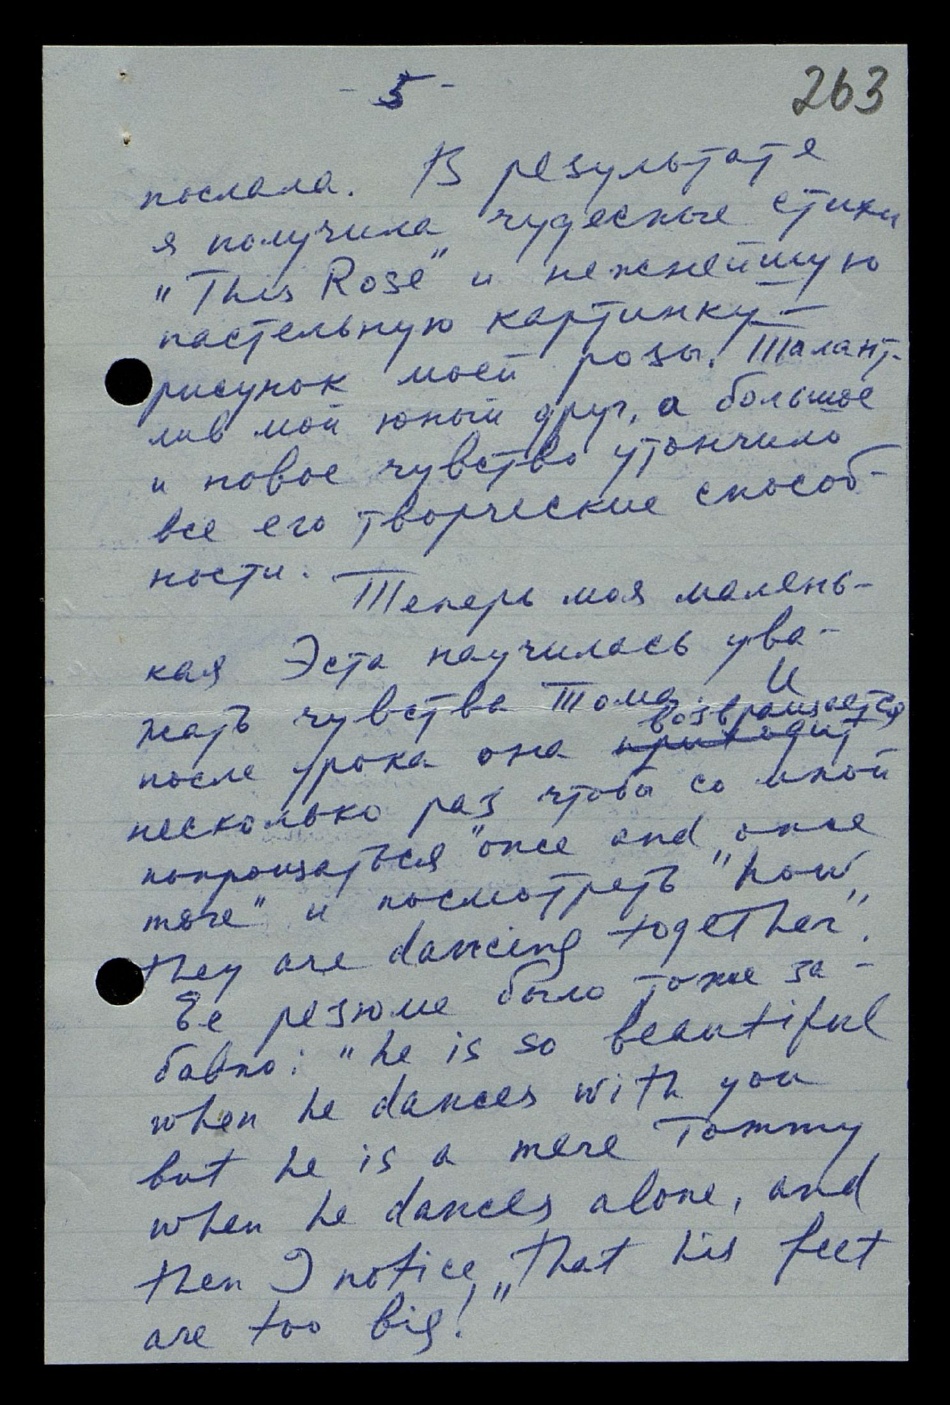 - 5 -
263
послала. В результате
я получила чудесные стихи
"This Rose" и нежнейшую
пастельную картинку —
рисунок моей розы. Талант-
лив мой юный друг, а большое
и новое чувство утончило
все его творческие способ-
ности. Теперь моя малень-
кая Эста научилась ува-
жать чувства Тома. И
возвращается
после урока она приходит
несколько раз чтобы со мной
попрощаться "once and once
more" и посмотреть "how
they are dancing together".
Ее резюме было тоже за-
бавно: "he is so beautiful
when he dances with you
but he is a mere Tommy
when he dances alone, and
then I notice, that his feet
are too big!"